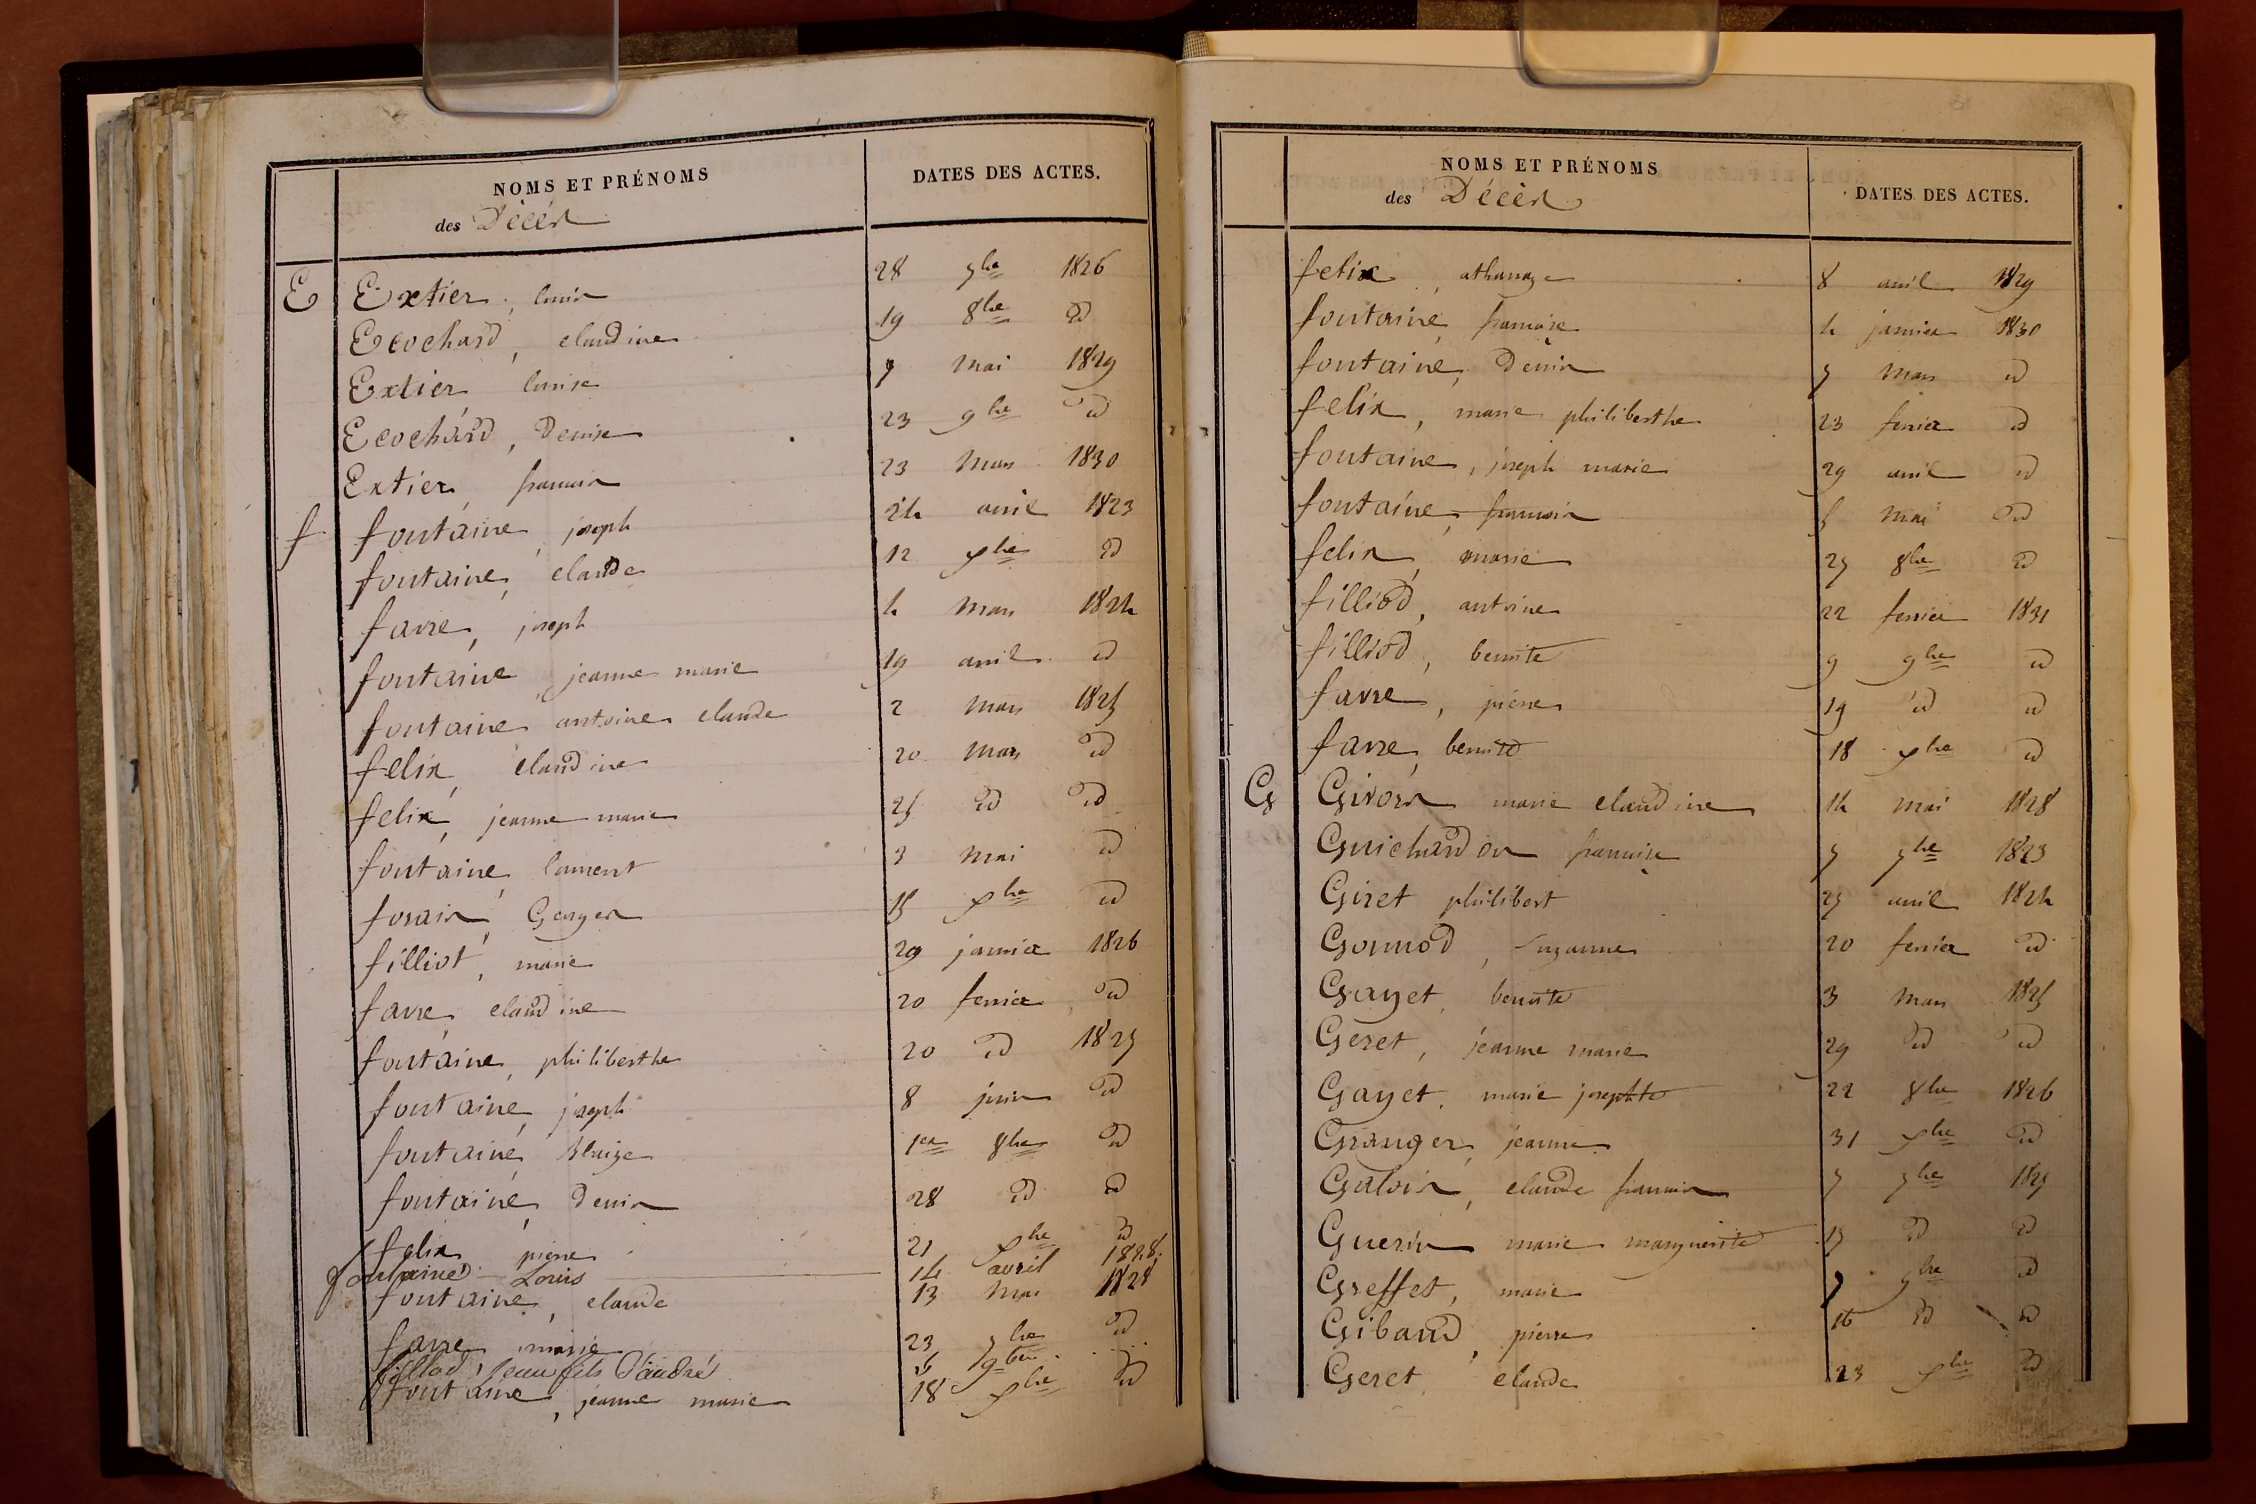 NOMS ET PRÉNOMS
des Décès
DATES DES ACTES.
E Extier, louis 28 7bre 1826
Ecochard, claudine 19 8bre id
Extier louise 7 mai 1829
Ecochard, Denise 23 9bre id
Extier francois 23 mars 1830
f fontaine, joseph 24 avril 1823
fontaine, claude 12 xbre id
favre, joseph 4 mars 1824
fontaine, jeanne marie 19 avril id
fontaine antoine claude 2 mars 1825
felix, claudine 20 mars id
felix, jeanne marie 25 id id
fontaine, laurent 3 mai id
forain, Georges 15 xbre id
filliot, marie 29 janvier 1826
favre, claudine 20 fevrier id
fontaine, philiberthe 20 id 1827
fontaine, joseph 8 juin id
fontaine, Blaize 1er 8bre id
fontaine, Denis 28 id id
felix pierre 21 xbre id
fontaine Louis 14 avril 1828.
fontaine, claude 13 mai 1828
favre marie 23 7bre id
fillod, Jean fils d'andré 16 9bre
fontaine, jeanne marie 18 xbre id
NOMS ET PRÉNOMS
des Décès
DATES DES ACTES.
felix, athanaze 8 avril 1829
fontaine, francoise 4 janvier 1830
fontaine, Denis 7 mars id
felix, marie philiberthe 23 fevrier id
fontaine, joseph marie 29 avril id
fontaine, francois 5 mai id
felix, marie 27 8bre id
filliod, antoine 22 fevrier 1831
filliod, benoite 9 9bre id
favre, pierre 19 id id
favre, benoite 18 xbre id
G Givors marie claudine 14 mai 1828
Guichardon francoise 7 7bre 1823
Giret philibert 27 avril 1824
Gounod, Suzanne 20 fevrier id
Gayet, benoite 3 mars 1825
Geret, jeanne marie 29 id id
Gayet, marie josephte 22 8bre 1826
Granger, jeanne 31 xbre id
Galois, claude francois 7 7bre 1827
Guerin marie marguerite 17 id id
Greffet, marie 7 9bre id
Giband, pierre 16 id id
Geret, claude 23 xbre id